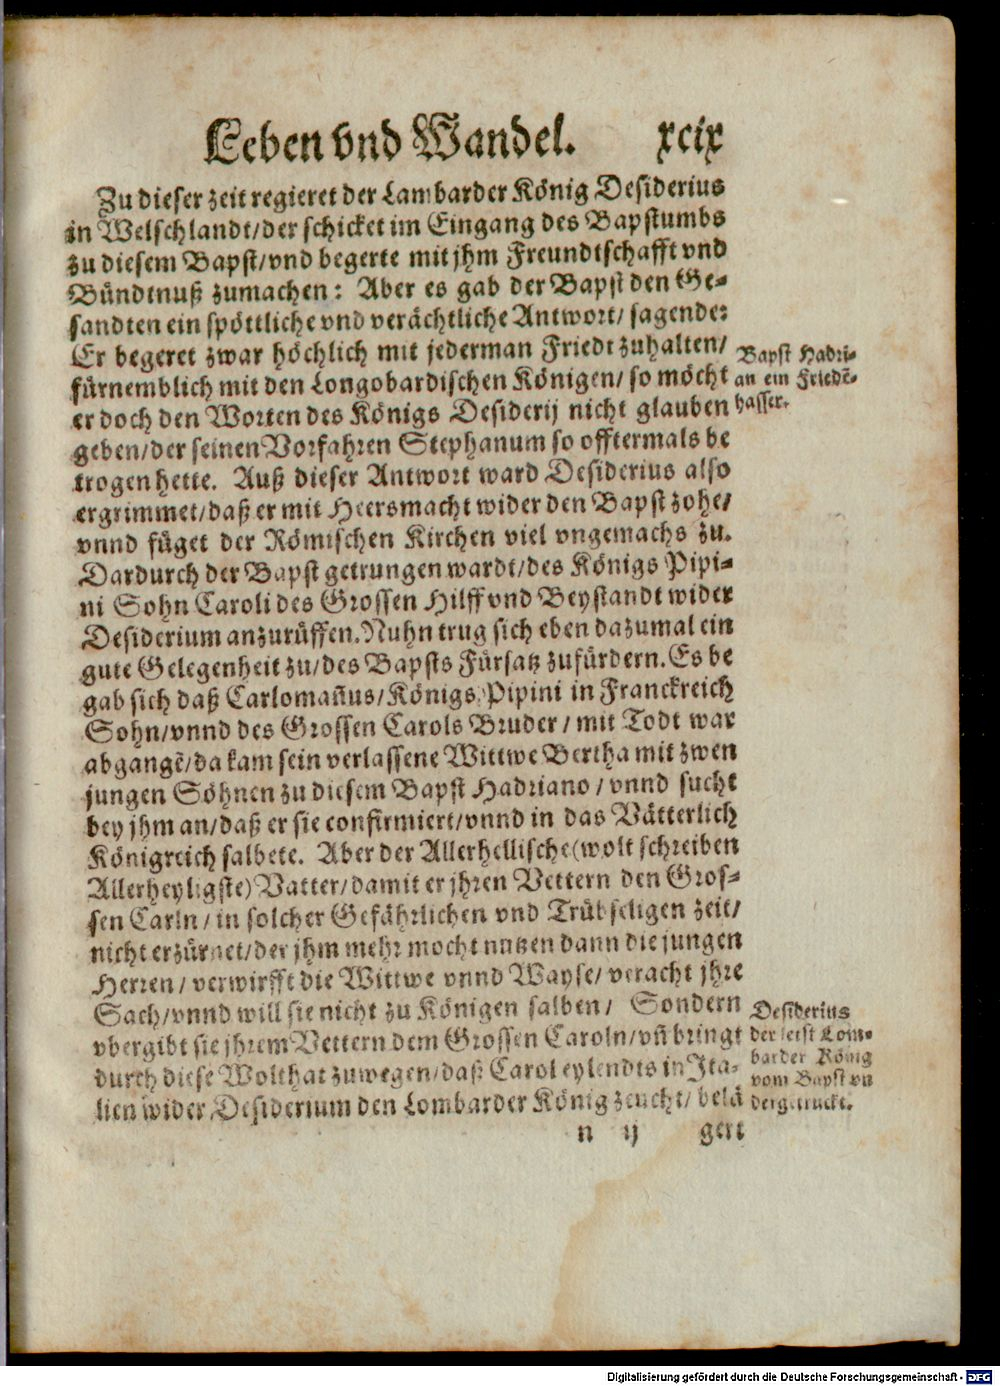 Leben vnd Wandel. xcix
Zu dieser zeit regieret der Lambarder König Desiderius
in Welschlandt/der schicket im Eingang des Bapstumbs
zu diesem Bapst/vnd begerte mit jhm Freundtschafft vnd
Bündtnuß zumachen: Aber es gab der Bapst den Ge-
sandten ein spöttliche vnd verächtliche Antwort/ sagende:
Er begeret zwar höchlich mit jederman Friedt zuhalten/
fürnemblich mit den Longobardischen Königen/ so möcht
er doch den Worten des Königs Desiderij nicht glauben
geben/der seinen Vorfahren Stephanum so offtermals be
trogen hette. Auß dieser Antwort ward Desiderius also
ergrimmet/daß er mit Heersmacht wider den Bapst zohe/
vnnd füget der Römischen Kirchen viel vngemachs zu.
Dardurch der Bapst getrungen wardt/des Königs Pipi-
ni Sohn Caroli des Grossen Hilff vnd Beystandt wider
Desiderium anzurüffen. Nuhn trug sich eben dazumal ein
gute Gelegenheit zu/des Bapsts Fürsatz zufürdern. Es be
gab sich daß Carlomañus/Königs Pipini in Franckreich
Sohn/vnnd des Grossen Carols Bruder/ mit Todt war
abgangē/da kam sein verlassene Wittwe Bertha mit zwen
jungen Söhnen zu diesem Bapst Hadriano/ vnnd sucht
bey jhm an/daß er sie confirmiert/vnnd in das Vätterlich
Königreich salbete. Aber der Allerhellische(wolt schreiben
Allerheyligste)Vatter/damit er jhren Vettern den Gros-
sen Carln/ in solcher Gefährlichen vnd Trübseligen zeit/
nicht erzürnet/der jhm mehr mocht nutzen dann die jungen
Herren/ verwirfft die Wittwe vnnd Wayse/ veracht jhre
Sach/vnnd will sie nicht zu Königen salben/ Sondern
vbergibt sie jhrem Vettern dem Grossen Caroln/vñ bringt
durch diese Wolthat zuwegen/daß Carol eylendts in Jta-
lien wider Desiderium den Lombarder König zeucht/ belä
n ij gert
Bapst Hadri-
an ein Friedē-
hasser.
Desiderius
der letst Lom-
barder König
vom Bapst vn
dergetruckt.
Digitalisierung gefördert durch die Deutsche Forschungsgemeinschaft - DFG